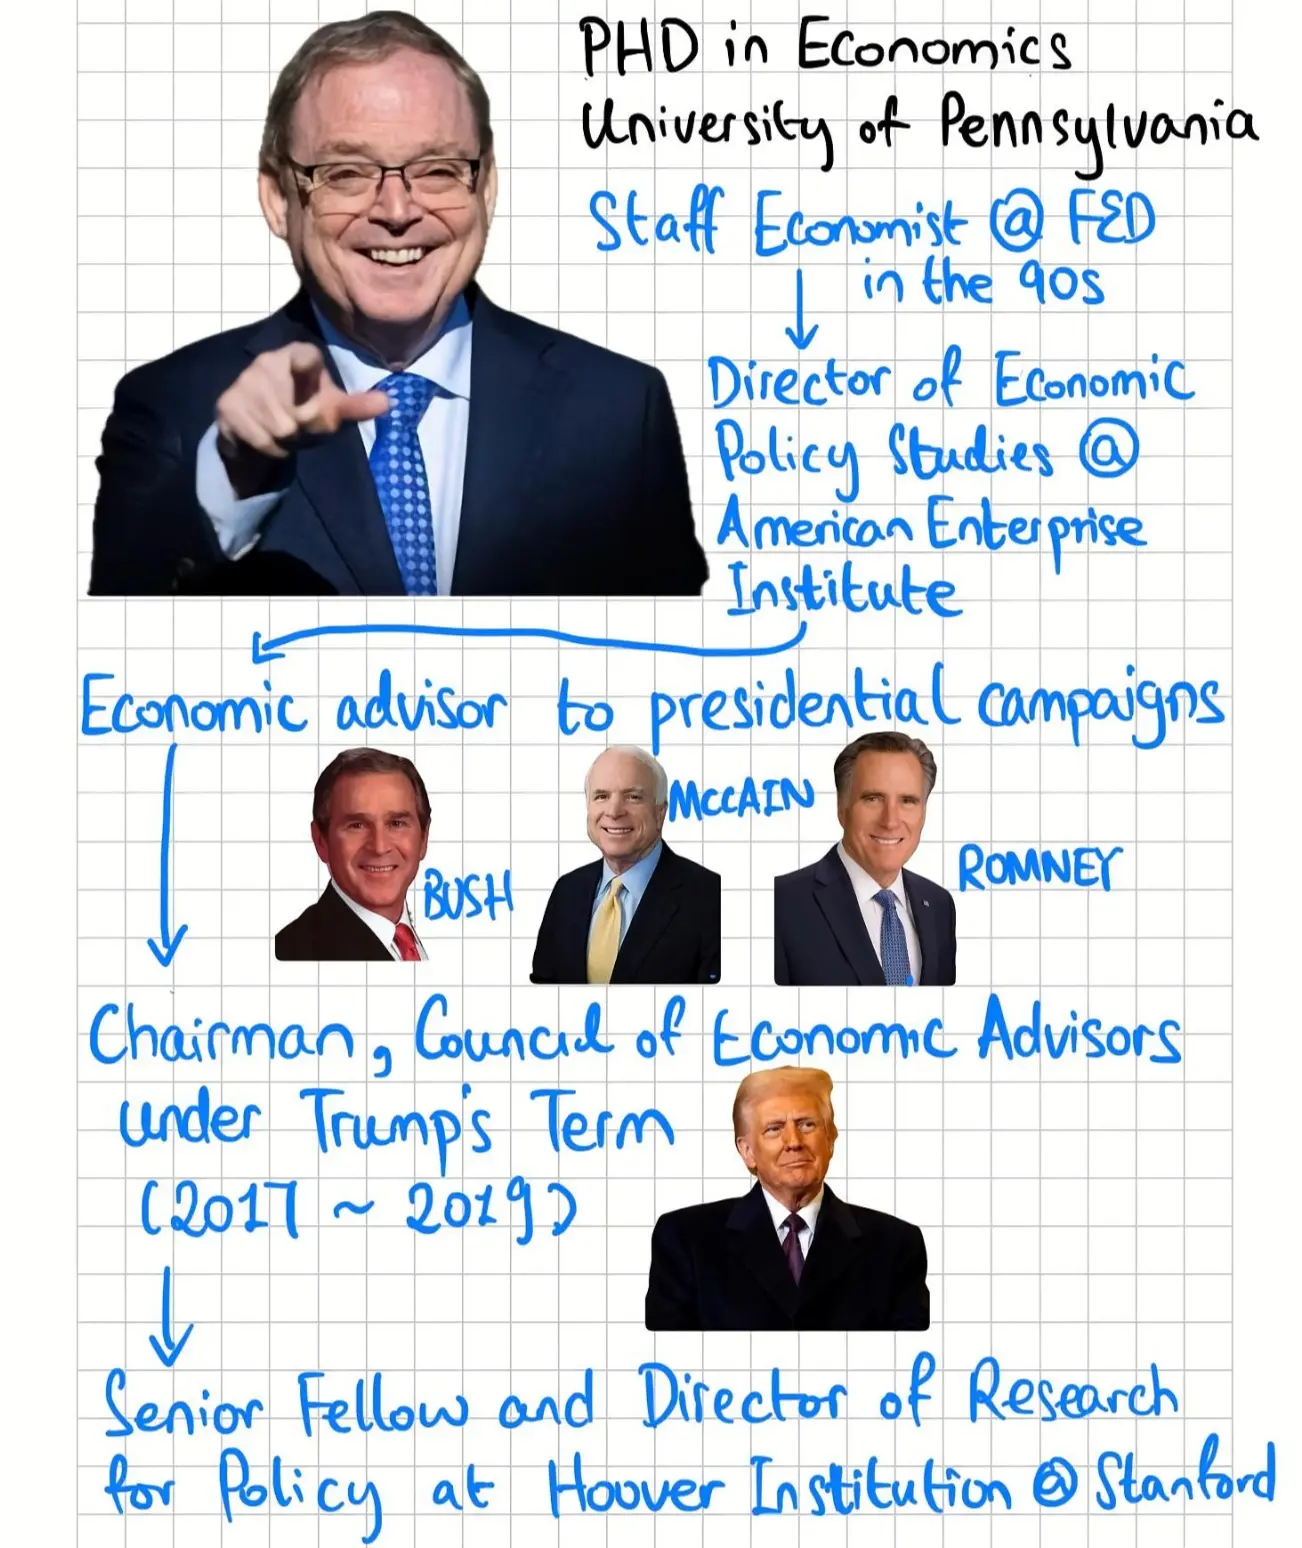 PHD in Economics
University of Pennsylvania
Staff Economist @ FED
in the 90s
Director of Economic
Policy Studies @
American Enterprise
Institute
Economic advisor to presidential campaigns
BUSH
McCAIN
ROMNEY
Chairman, Council of Economic Advisors
under Trump's Term
(2017 ~ 2019)
Senior Fellow and Director of Research
for Policy at Hoover Institution @ Stanford